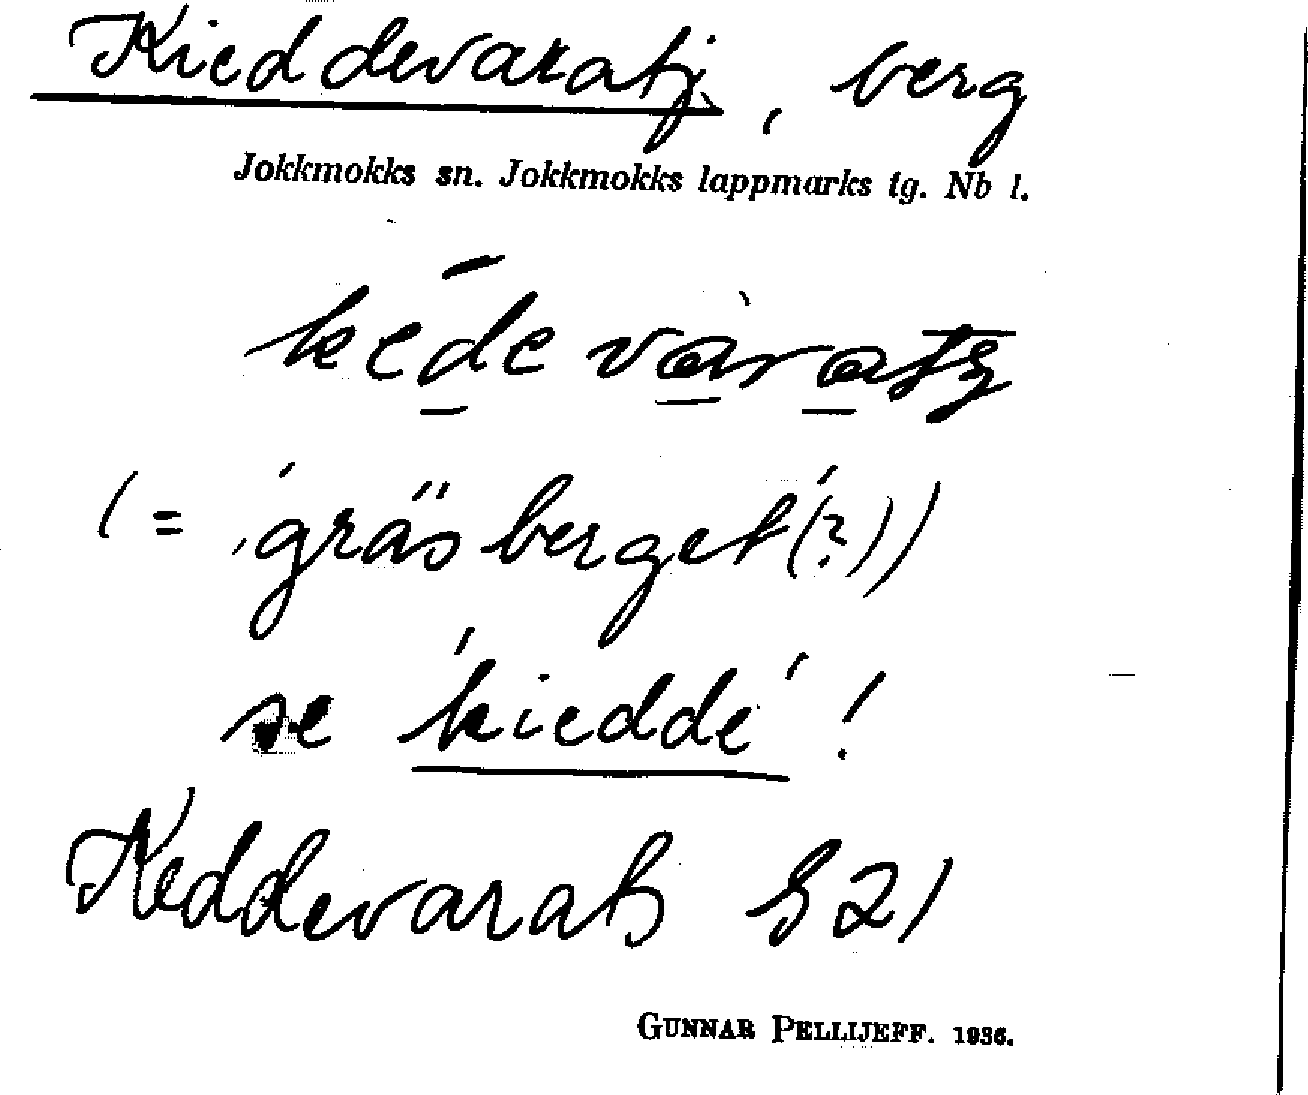 Kieddevaratj, berg
Jokkmokks sn. Jokkmokks lappmarks tg. Nb l.
(= 'gräsberget'(?))
se 'kieddé'!
Keddevarats S21
GUNNAR PELLIJEFF. 1936.